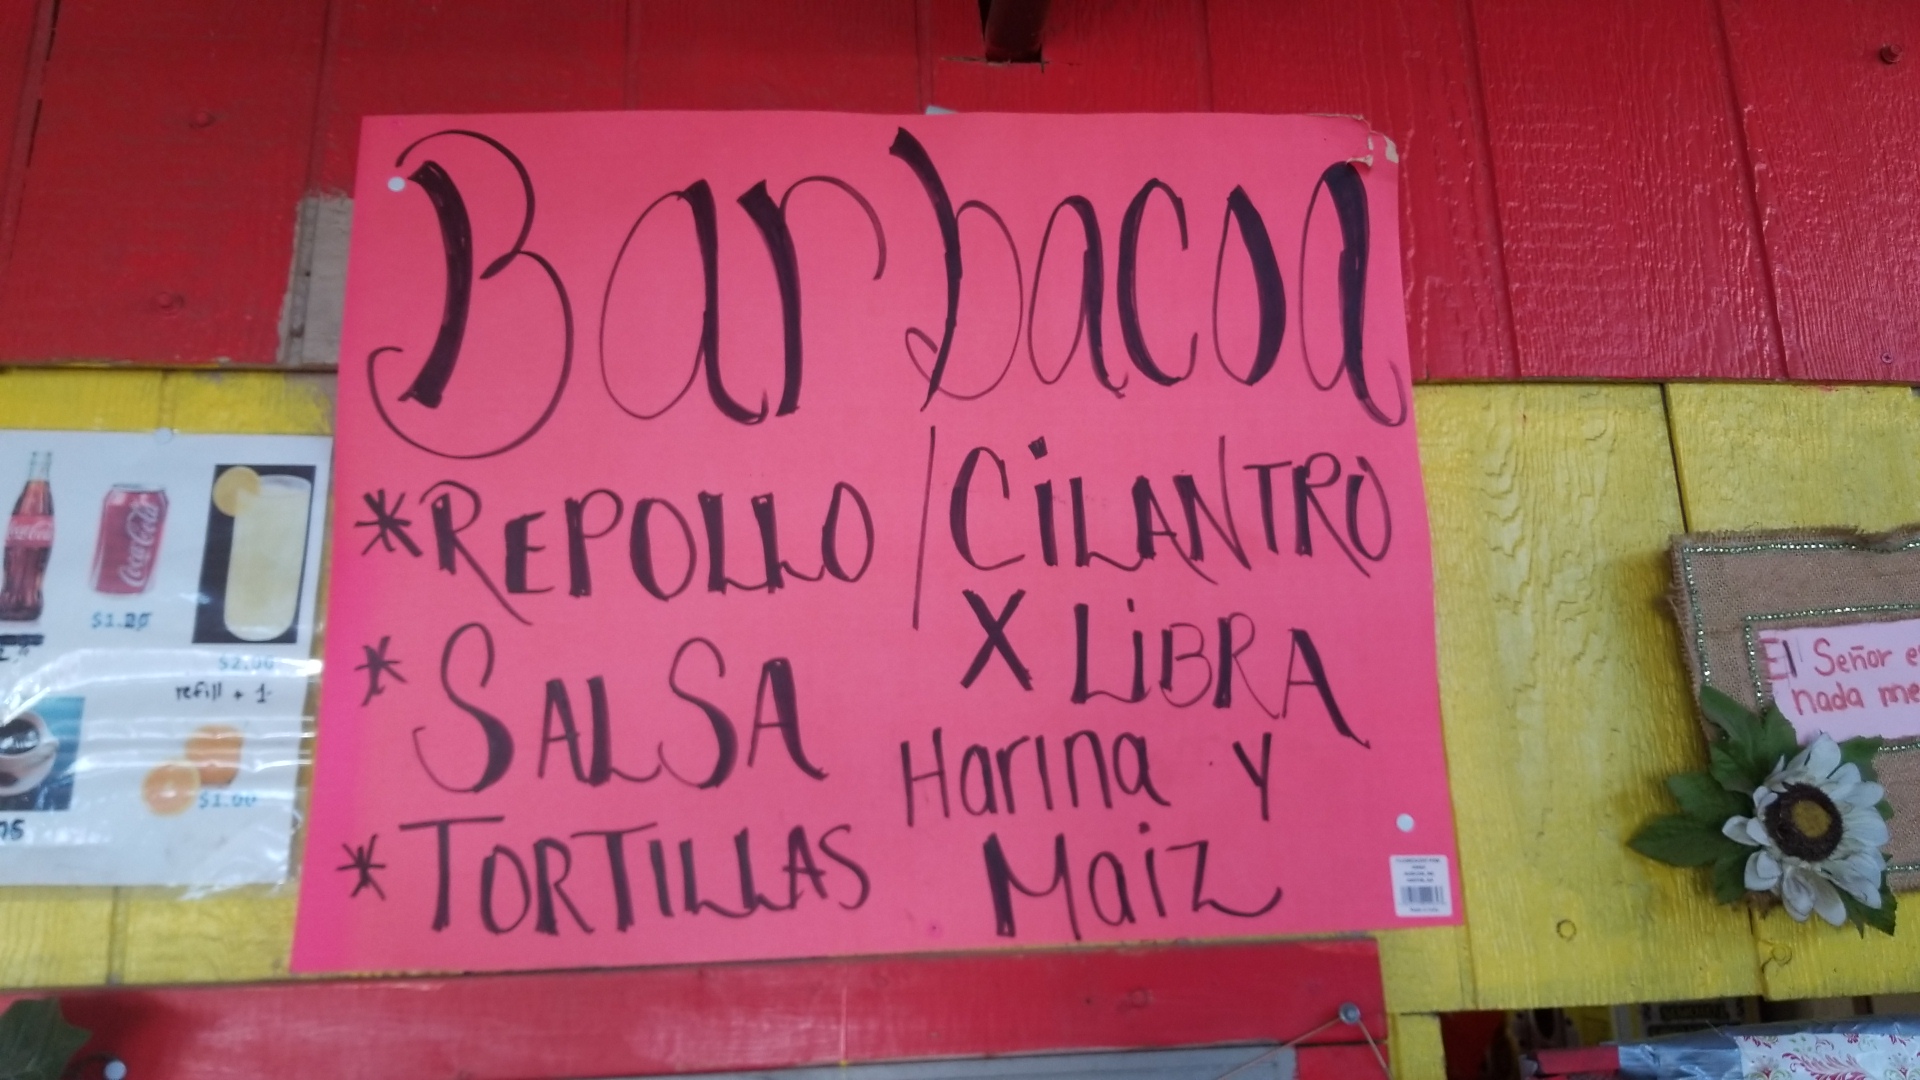 Barbacoa
*REPOLLO / CILANTRO
X LIBRA
* SALSA
Harina y
* TORTILLAS Maiz
Coca-Cola
Coca-Cola
$1.25
$2.00
refill + 1
$1.00
El Señor e
nada me